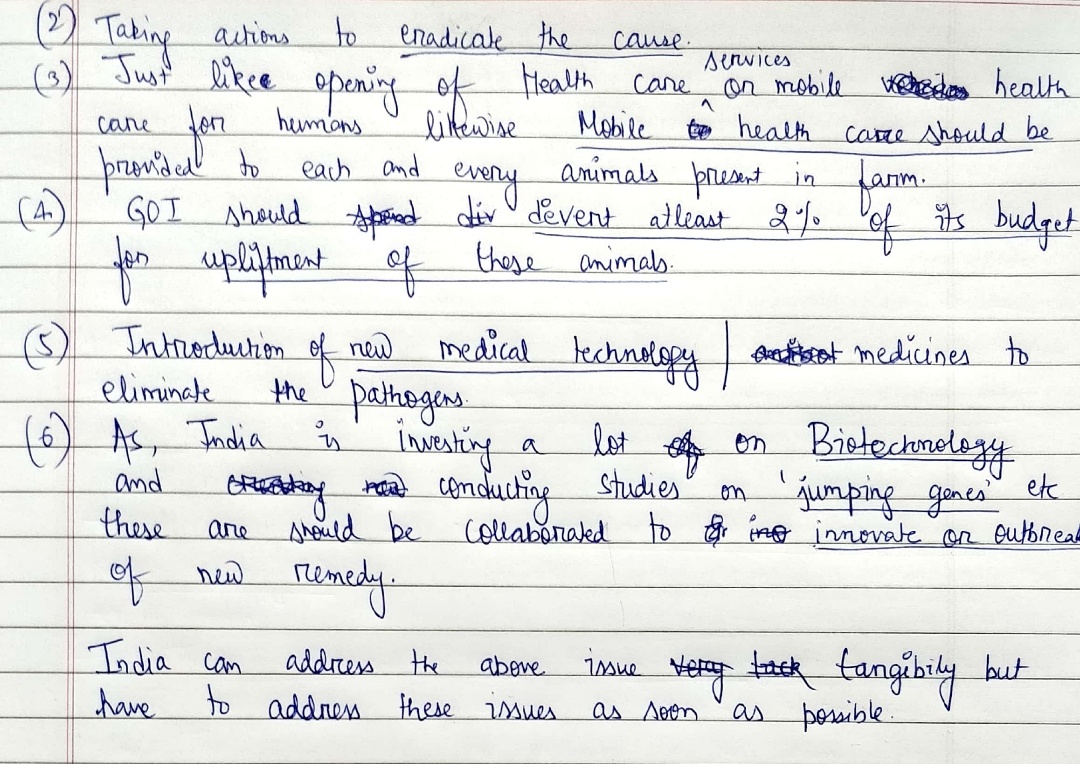 (2) Taking actions to eradicate the cause.
services
(3) Just like opening of Health care ^ or mobile health
care for humans likewise Mobile health care should be
provided to each and every animals present in farm.
(4) GOI should devert atleast 2% of its budget
for upliftment of these animals.
(5) Introduction of new medical technology | medicines to
eliminate the pathogens.
(6) As, India is investing a lot on Biotechnology
and conducting studies on 'jumping genes' etc
these are should be collaborated to innovate or outbreak
of new remedy.
India can address the above issue tangibily but
have to address these issues as soon as possible.